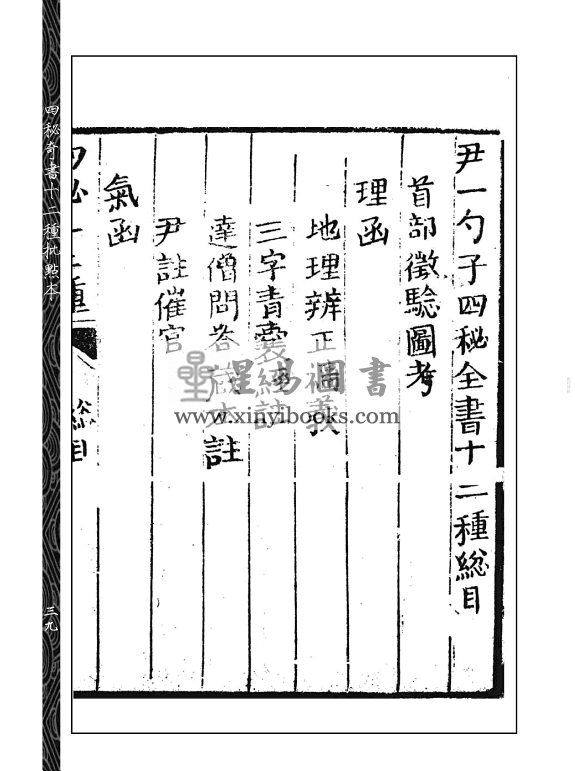 尹一勺子四秘全書十二種総目
首部徵驗圖考
理函
地理辨正補義
三字青囊經註
達僧問荅註
尹註催官
氣函
総目
四秘奇書十二種批點本
三九
星易圖書
www.xinyibooks.com